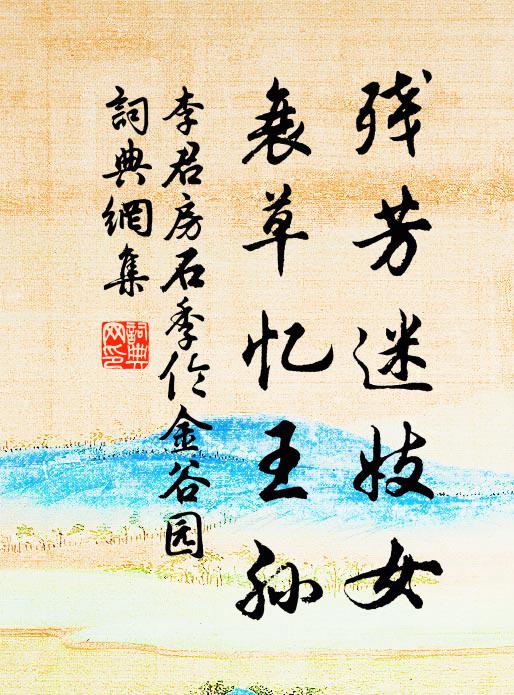 残芳迷妓女
衰草忆王孙
李君房石季伦金谷园
詞典網集
詞典
网印